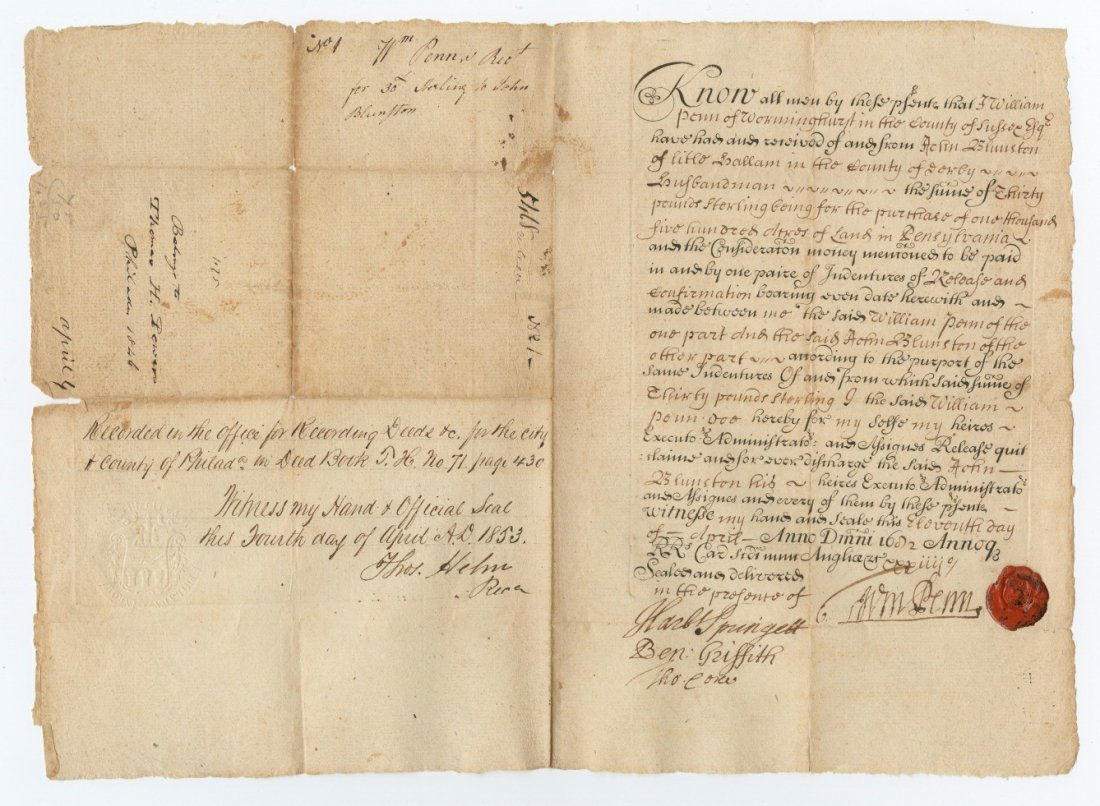 No 1 Wm Penn's Rect
for 30£ Sterling to John
Blunston
Belongs to
Thomas H. Powers
Philada 1846
april 9
Recorded in the Office for Recording Deeds &c. for the City
& County of Philada in Deed Book T. H. No. 71 page 430
Witness my Hand & Official Seal
this Fourth day of April A.D. 1853.
Thos. Helm
Know all men by these psents that I William
Penn of Worminghurst in the County of Sussex Esqe
have had and received of and from John Blunston
of litle Hallam in the County of Derby
Husbandman the sume of Thirty
pounds Sterling being for the purchase of one thousand
five hundred Acres of Land in Pensylvania
and the Consideracon money menconed to be paid
in and by one paire of Indentures of Release and
Confirmation bearing even date herewith and
made between me the said William Penn of the
one part And the said John Blunston of the
other part according to the purport of the
same Indentures Of and from which said sume of
Thirty pounds Sterling I the said William
Penn doe hereby for my selfe my heires
Executors Administrato: and Assignes Release quit
claime and for ever discharge the said John
Blunston his heires Executors Administrators
and Assignes and every of them by these psents
witnesse my hand and Seale this Eleventh day
of April Anno Dmni 1682 Annoq
RRs Car Scdi nunc Angliæ &c xxxiiijo
Sealed and delivered
in the presence of
Wm Penn
Harbt Springett
Ben: Griffith
Tho: Coxe